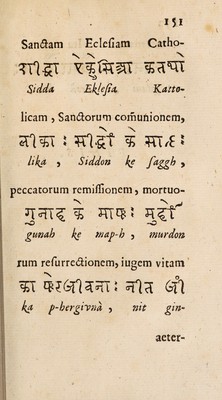 151
Sanctam Eclesiam Catho-
सीद्धा ऐकेसिआ कतथो
Sidda Eklesia Katto-
licam, Sanctorum comunionem,
लीका: सीर्द्धो के साह:
lika, Siddon ke saggh,
peccatorum remissionem, mortuo-
गुनाह के माफ: मुर्दो
gunah ke map-h, murdon
rum resurrectionem, iugem vitam
का फेरजीवना: नीत जीं
ka p-hergivnà, nit gin-
aeter-